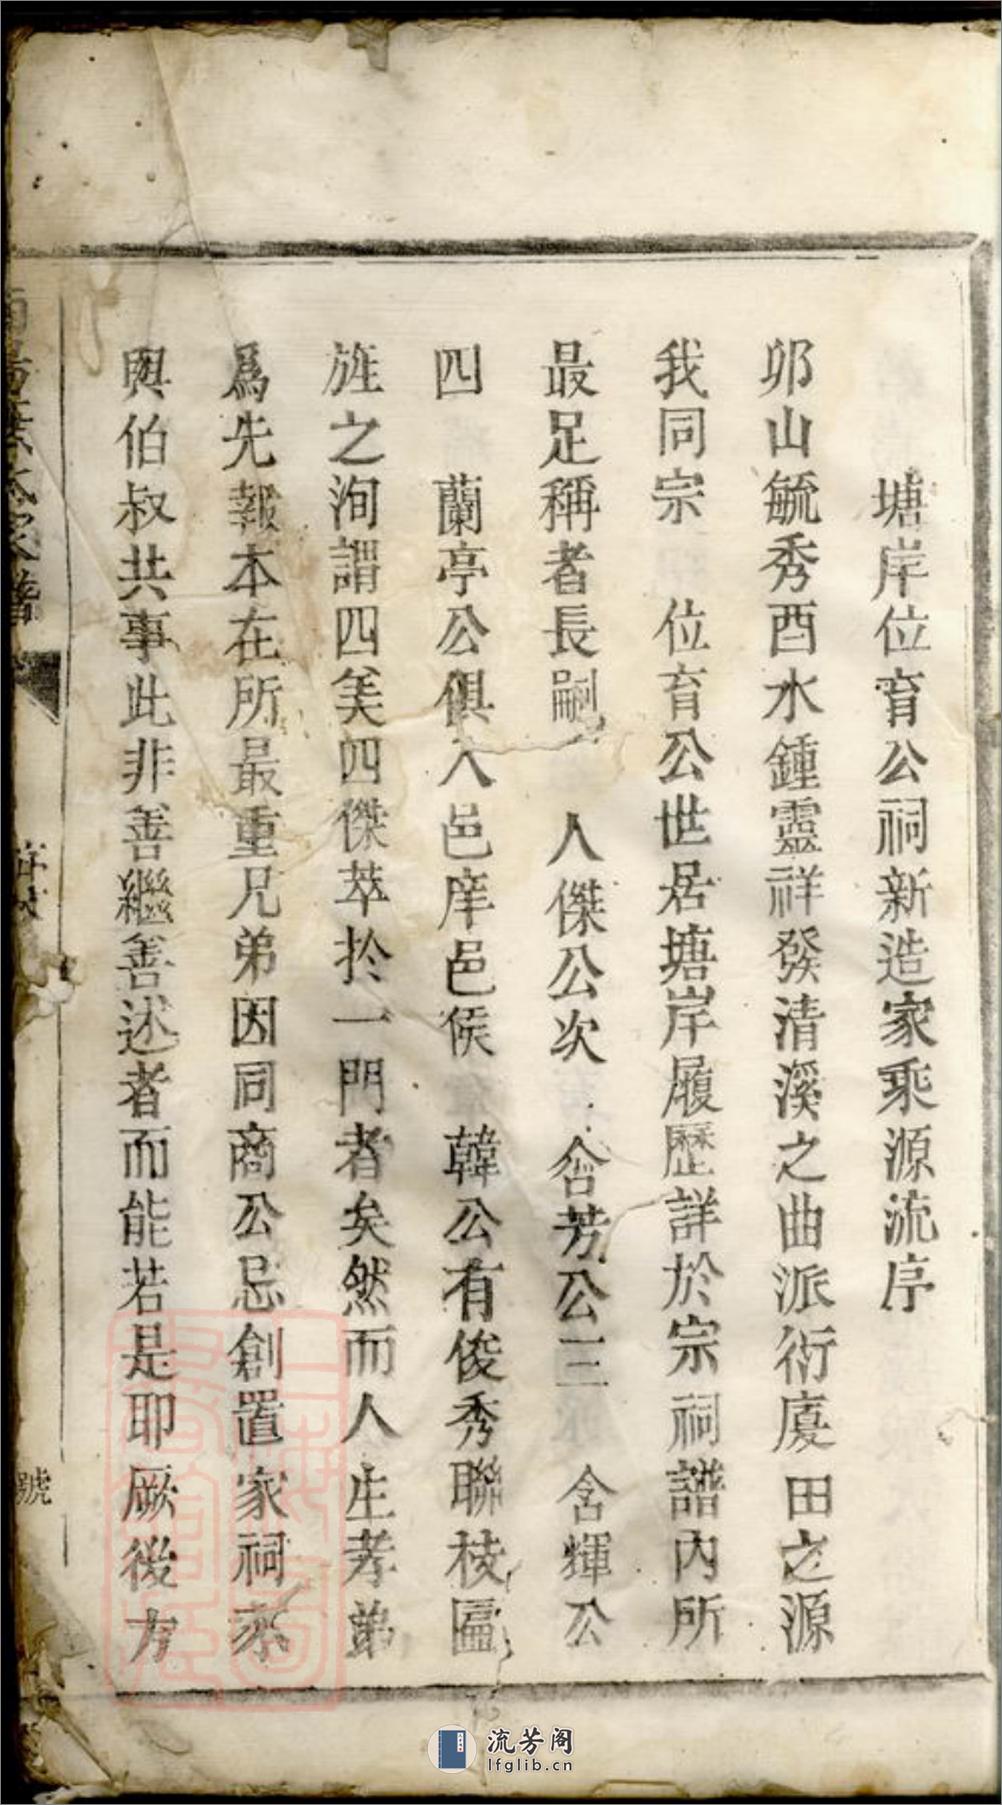 塘岸位育公祠新造家乘源流序
卯山毓秀酉水鍾靈祥發清溪之曲派衍廈田之源
我同宗 位育公世居塘岸履歷詳於宗祠譜內所
最足稱者長嗣 人傑公次 含芳公三 含輝公
四 蘭亭公俱入邑庠邑侯 韓公有俊秀聯枝匾
旌之洵謂四美四傑萃於一門者矣然而人生孝弟
爲先報本在所最重兄弟因同商公忌創置家祠亦
與伯叔共事此非善繼善述者而能若是耶厥後方
家譜
號
流芳阁
lfglib.cn